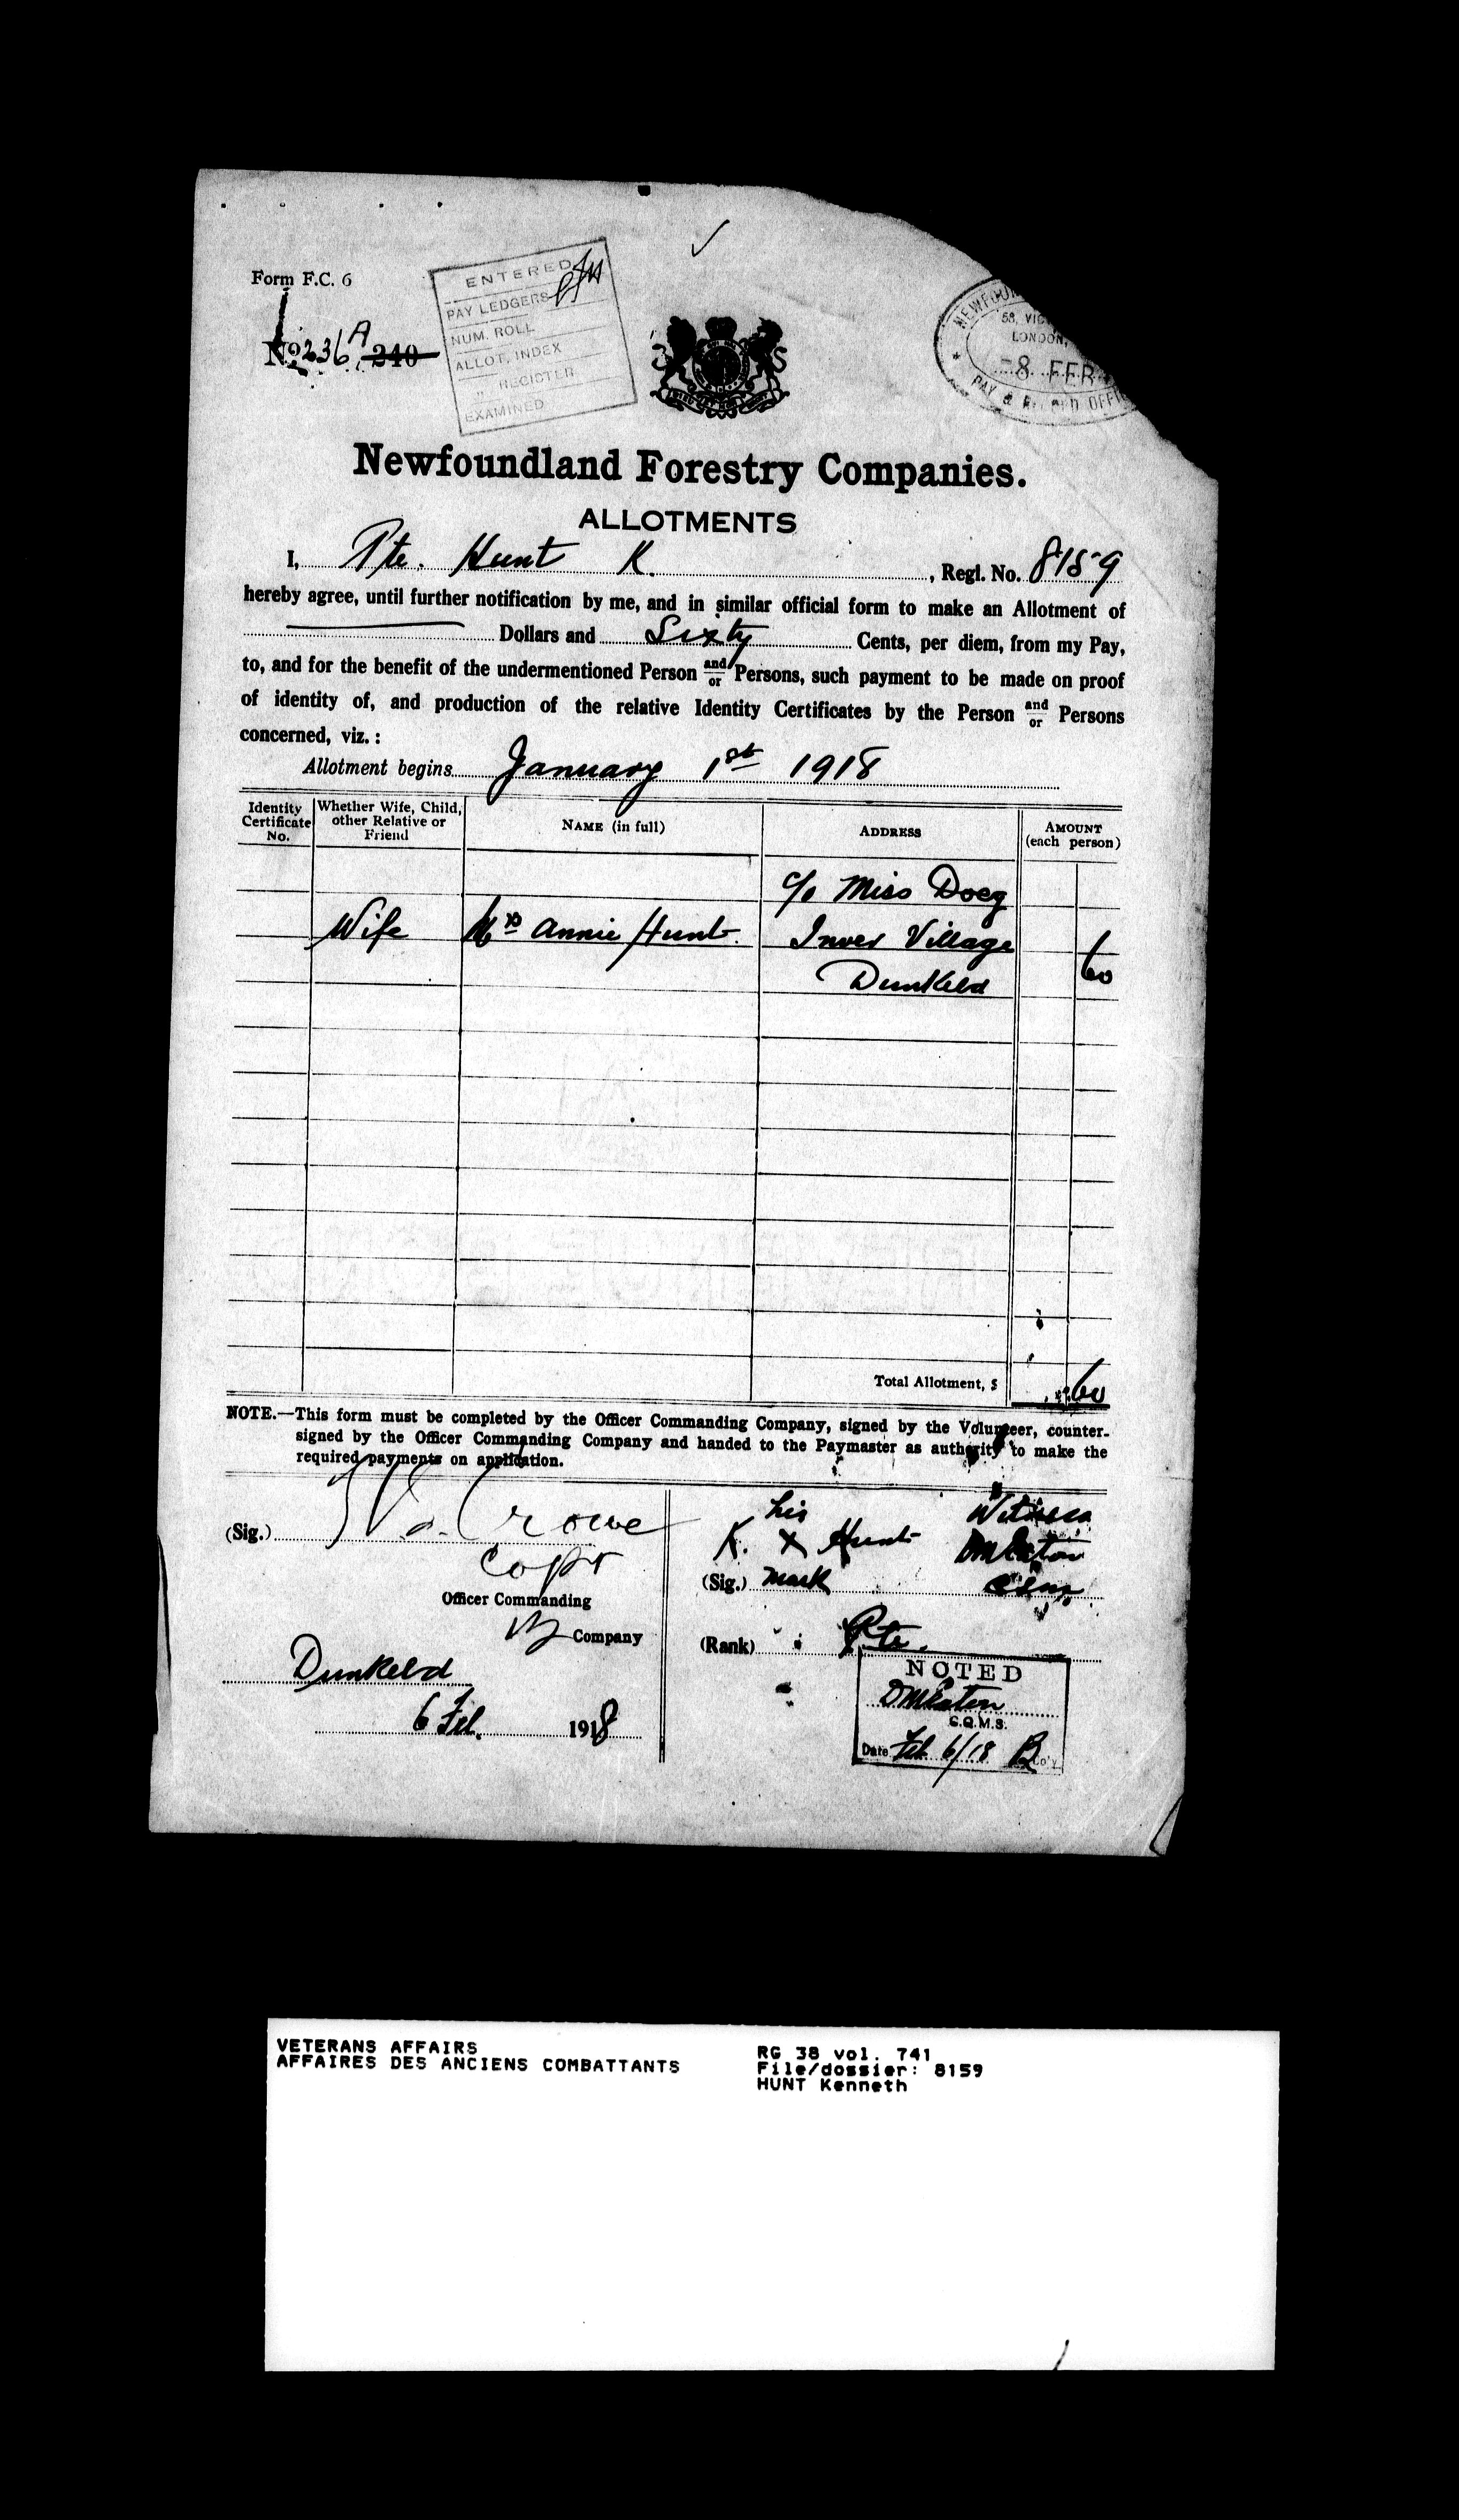 Form F.C. 6
No 236 A 240
ENTERED
PAY LEDGERS
NUM. ROLL
ALLOT. INDEX
" REGISTER
EXAMINED
NEWFOUN
58, VIC
LONDON,
-8 FEB
PAY & RECORD OFFIC
Newfoundland Forestry Companies.
ALLOTMENTS
I, Pte. Hunt K. , Regl. No. 8159
hereby agree, until further notification by me, and in similar official form to make an Allotment of
Dollars and Sixty Cents, per diem, from my Pay,
to, and for the benefit of the undermentioned Person and/or Persons, such payment to be made on proof
of identity of, and production of the relative Identity Certificates by the Person and/or Persons
concerned, viz. :
Allotment begins January 1st 1918
Identity Certificate No. Whether Wife, Child, other Relative or Friend NAME (in full) ADDRESS AMOUNT (each person)
c/o Miss Doeg
Wife Mrs Annie Hunt. Inver Village 60
Dunkeld
Total Allotment, $ 60
NOTE.—This form must be completed by the Officer Commanding Company, signed by the Volunteer, counter-
signed by the Officer Commanding Company and handed to the Paymaster as authority to make the
required payments on application.
his Witness
(Sig.) Crowe K. X Hunt DM Eaton
Capt (Sig.) mark
Officer Commanding
B Company (Rank) Pte.
Dunkeld
6 Feb. 1918
NOTED
DM Eaton
C.Q.M.S.
Date Feb 6/18 B Co'y
VETERANS AFFAIRS
AFFAIRES DES ANCIENS COMBATTANTS
RG 38 vol. 741
File/dossier: 8159
HUNT Kenneth